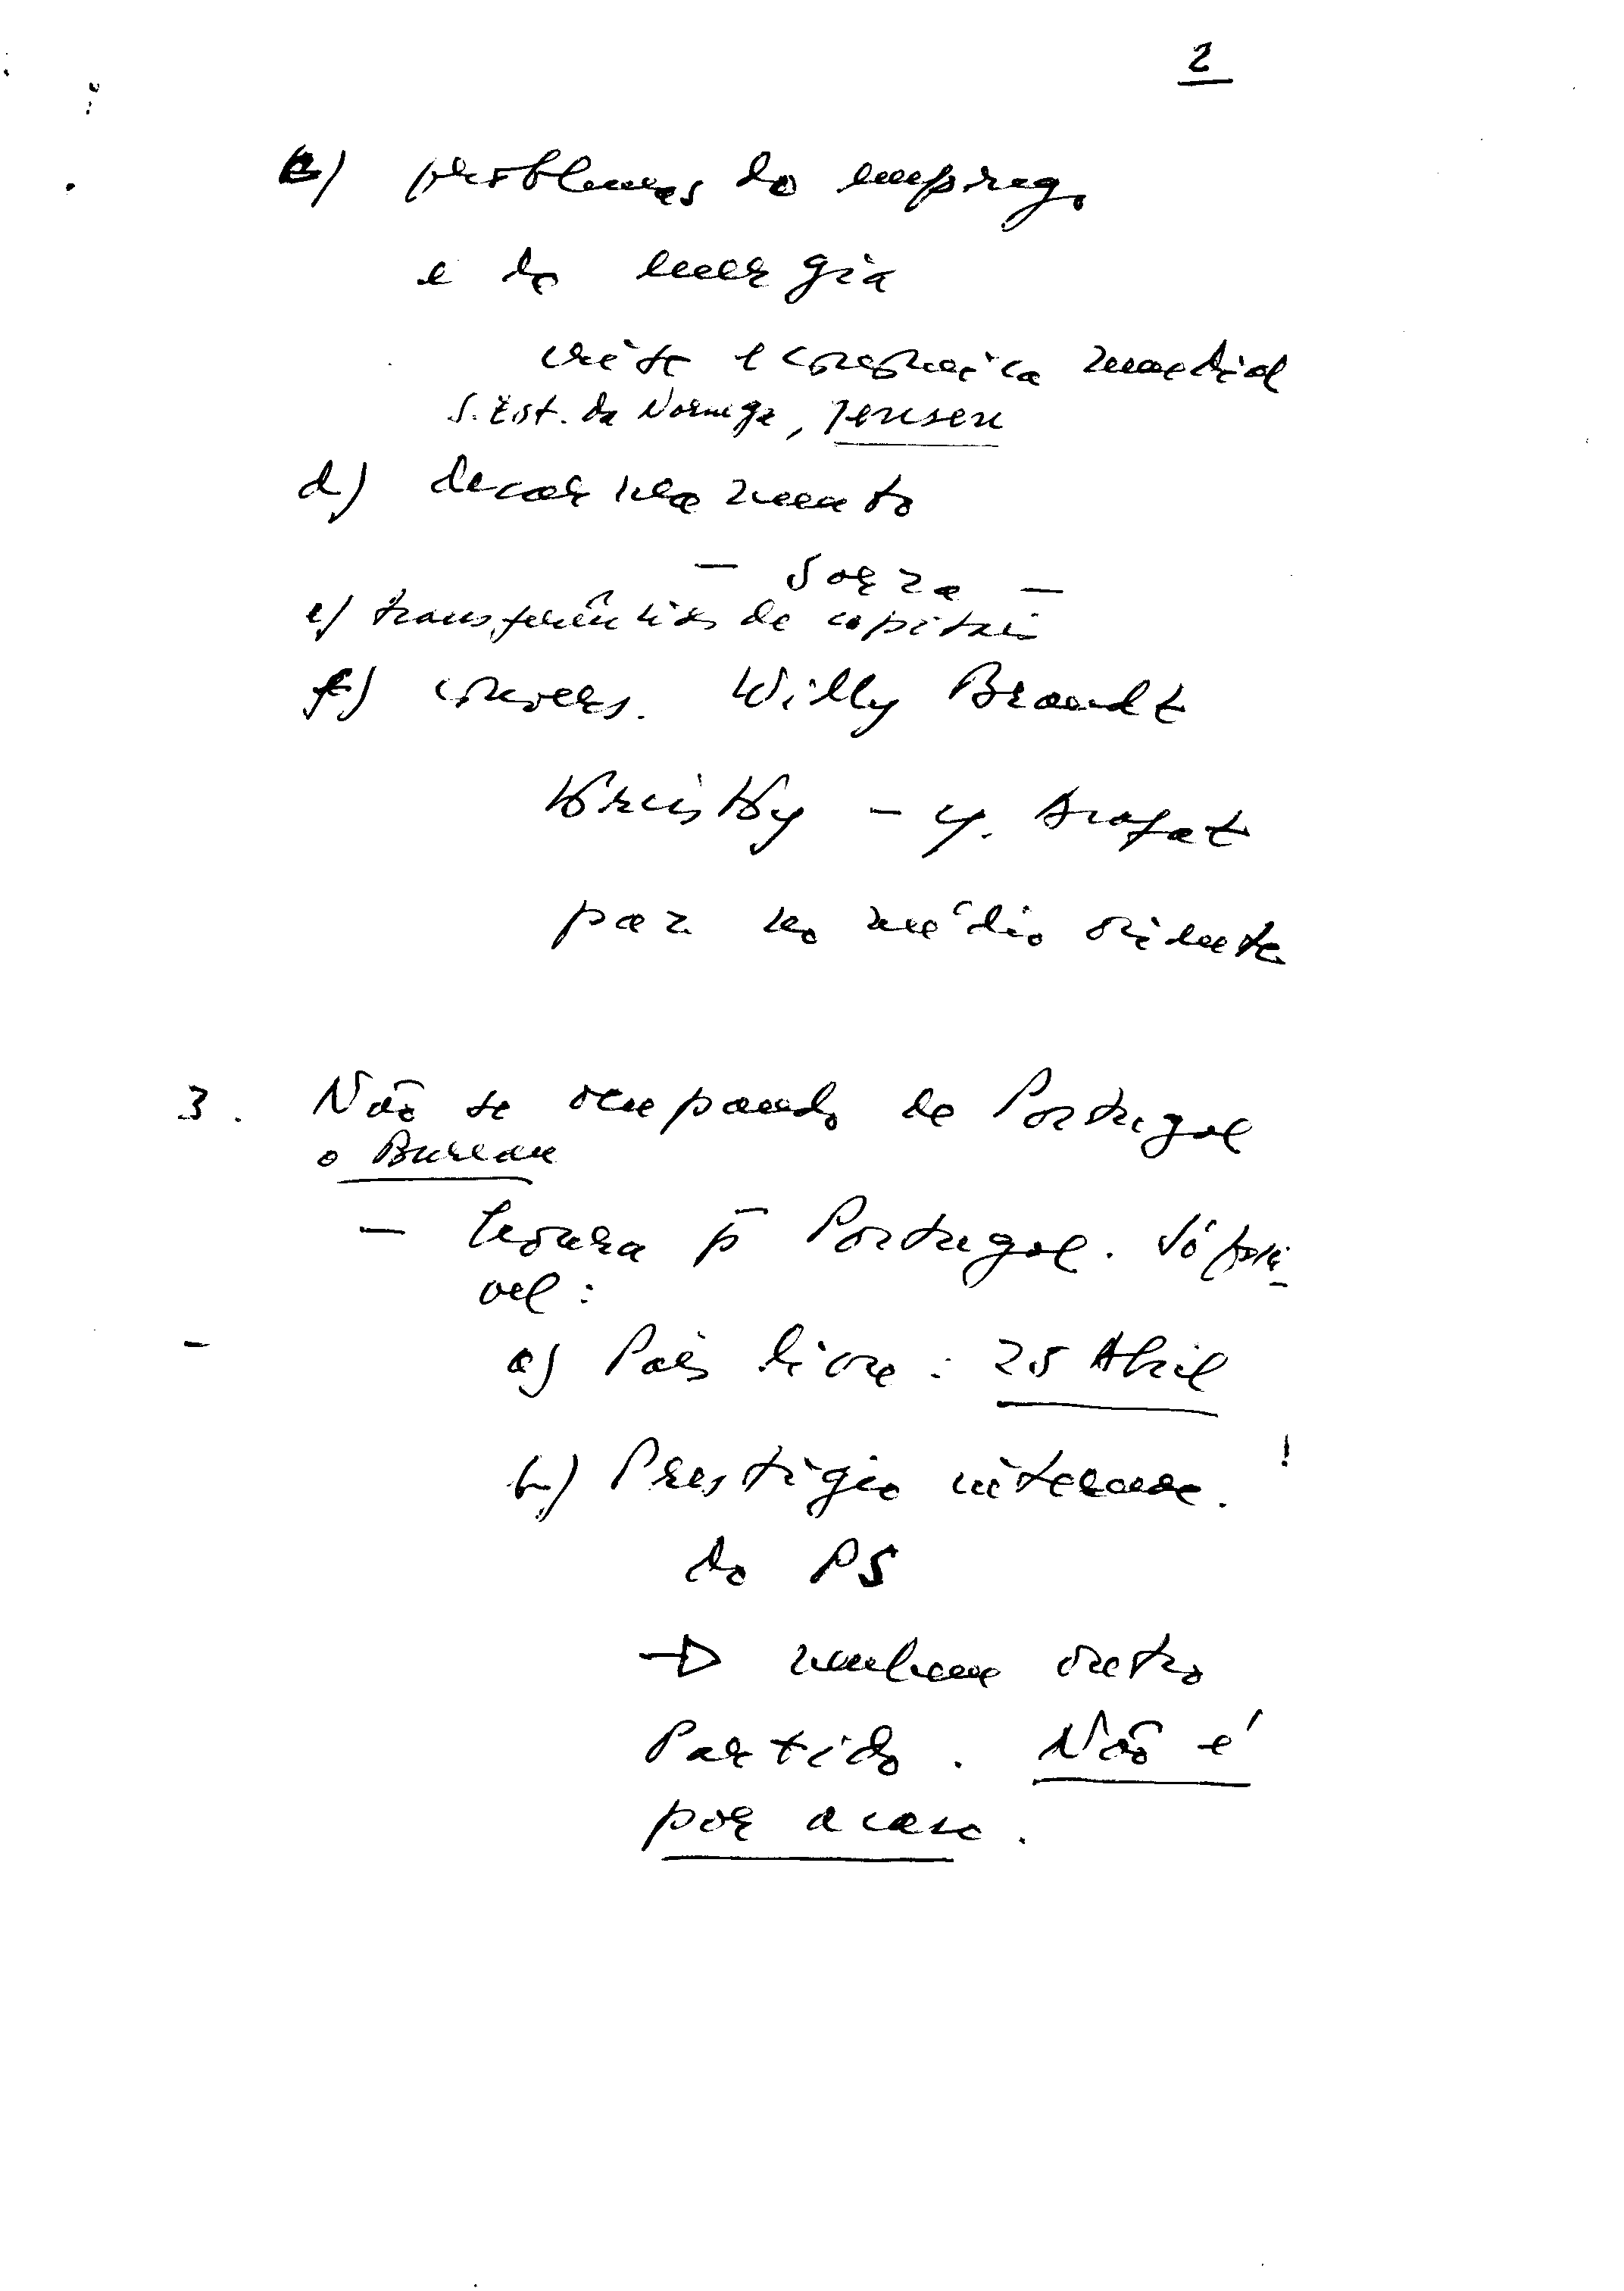 2
c) problemas do emprego
e da energia
crise economica mundial
S. Est. da Noruega, Jensen
d) desarmamento
– Sorsa –
e) transferências de capitais
f) convers. Willy Brandt
Kreisky – Y. Arafat
paz no médio oriente
3. Não se ocupando de Portugal
o Bureau
– honra p̄ Portugal. Só possí-
vel:
a) País livre: 25 Abril
b) Prestígio internac. !
do PS
→ nenhum outro
Partido. Não é
por acaso.